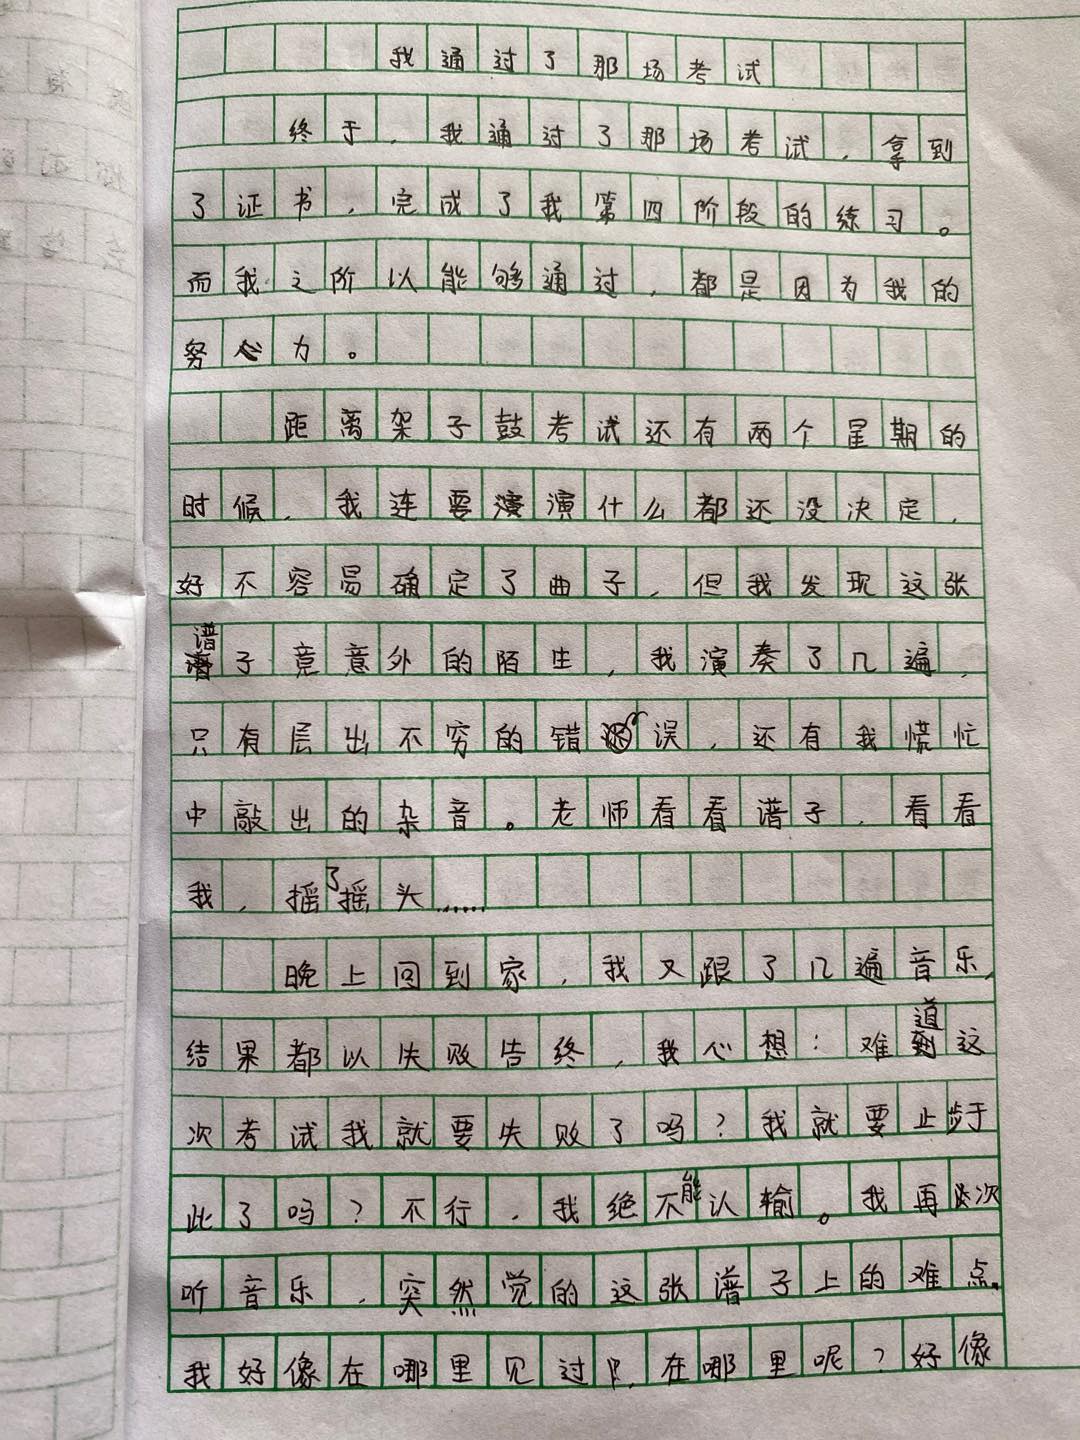 我通过了那场考试
终于，我通过了那场考试，拿到
了证书，完成了我第四阶段的练习。
而我之阶以能够通过，都是因为我的
努力。
距离架子鼓考试还有两个星期的
时候，我连要演什么都还没决定，
好不容易确定了曲子，但我发现这张
谱子竟意外的陌生，我演奏了几遍，
只有层出不穷的错误，还有我慌忙
中敲出的杂音。老师看看谱子，看看
我，摇了摇头……
晚上回到家，我又跟了几遍音乐，
结果都以失败告终，我心想：难道这
次考试我就要失败了吗？我就要止步于
此了吗？不行，我绝不能认输。我再次
听音乐，突然觉的这张谱子上的难点，
我好像在哪里见过，在哪里呢？好像